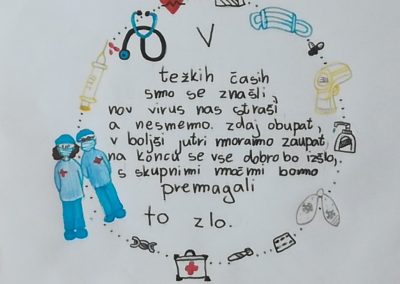 V
težkih časih
smo se znašli,
nov virus nas straši,
a nesmemo zdaj obupat,
v boljši jutri moramo zaupat,
na koncu se vse dobro bo izšlo,
s skupnimi močmi bomo
premagali
to zlo.